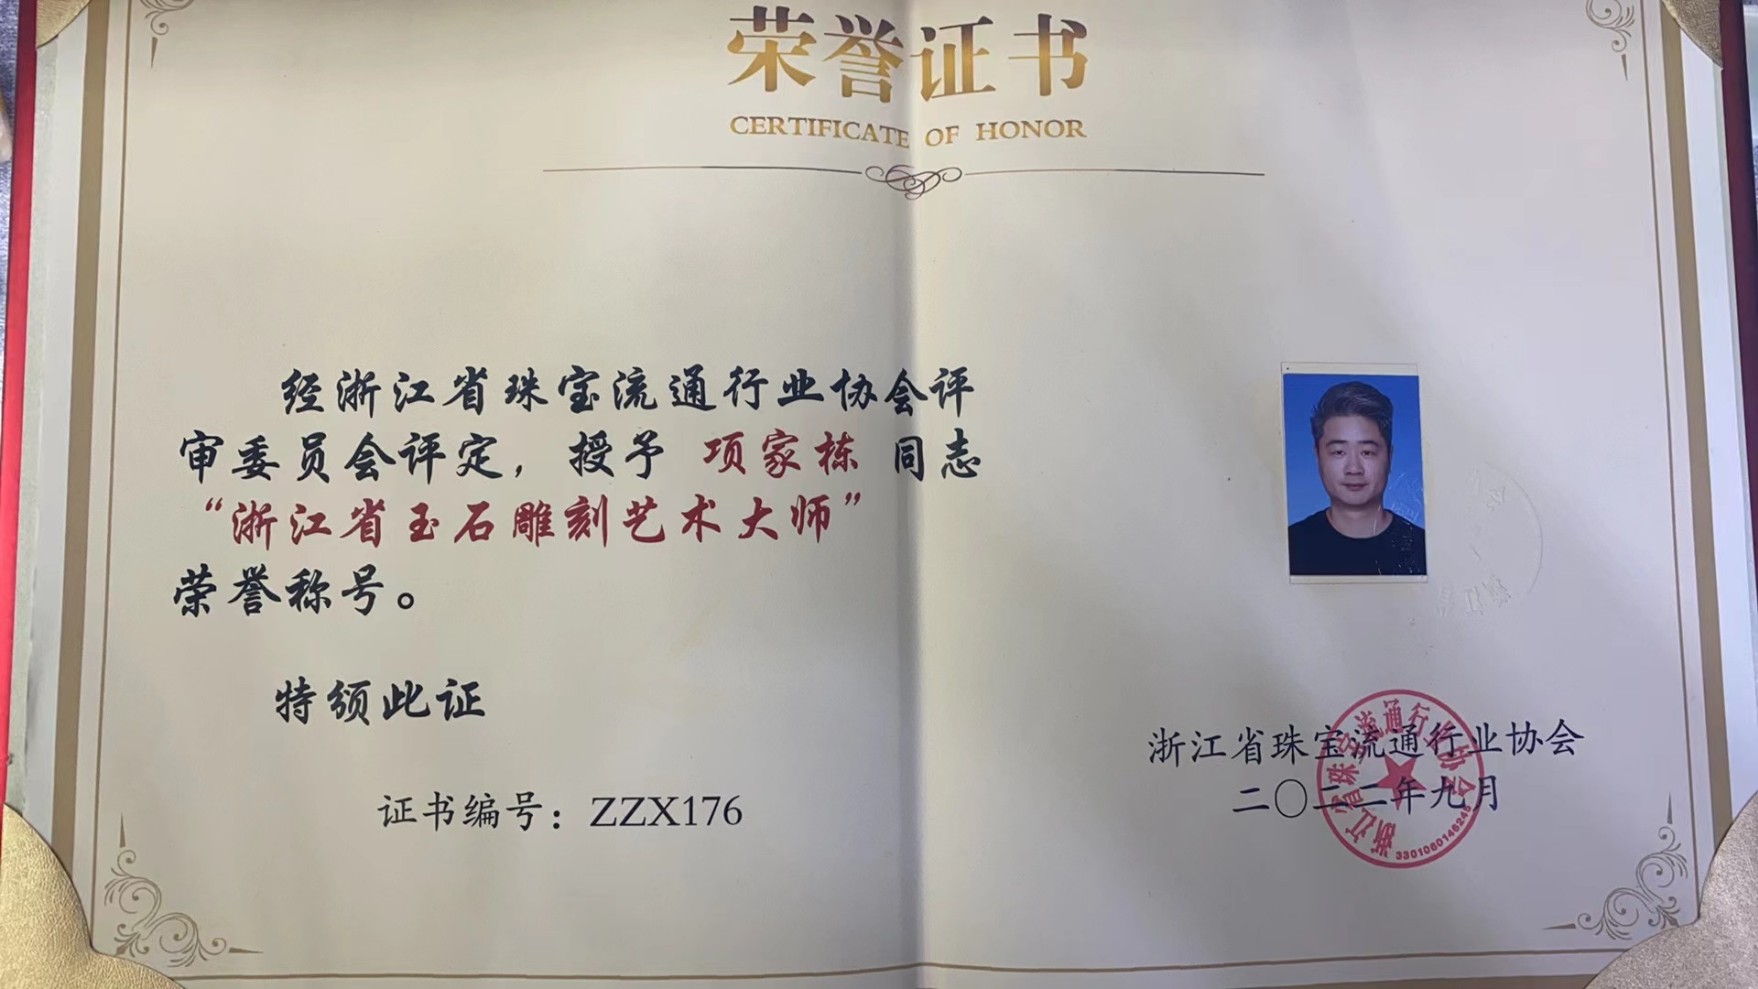 荣誉证书
CERTIFICATE OF HONOR
经浙江省珠宝流通行业协会评
审委员会评定，授予 项家栋 同志
“浙江省玉石雕刻艺术大师”
荣誉称号。
特颁此证
证书编号：ZZX176
浙江省珠宝流通行业协会
二〇二二年九月
浙江省珠宝流通行业协会